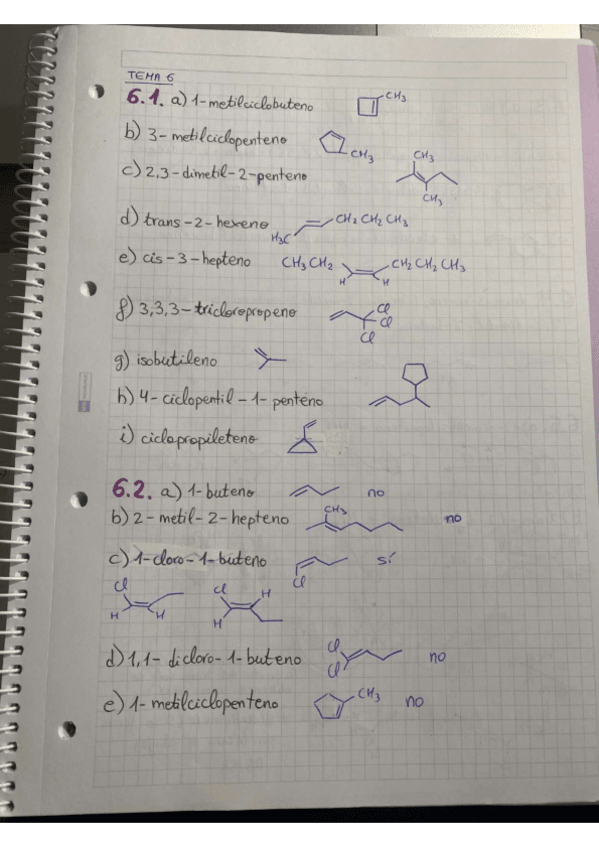 TEMA 6
6.1. a) 1-metilciclobuteno CH3
b) 3-metilciclopenteno CH3
c) 2,3-dimetil-2-penteno CH3 CH3
d) trans-2-hexeno H3C CH2 CH2 CH3
e) cis-3-hepteno CH3 CH2 H H CH2 CH2 CH3
f) 3,3,3-tricloropropeno Cl Cl Cl
g) isobutileno
h) 4-ciclopentil-1-penteno
i) ciclopropileteno
6.2. a) 1-buteno no
b) 2-metil-2-hepteno CH3 no
c) 1-cloro-1-buteno Cl sí
Cl H H Cl H H
d) 1,1-dicloro-1-buteno Cl Cl no
e) 1-metilciclopenteno CH3 no